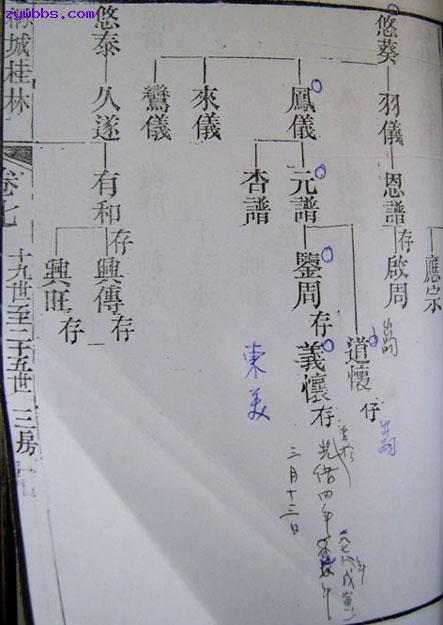 zywbbs.com
應宗
悠葵 羽儀 恩譜 存 啟周
出嗣
鳳儀 元譜 鑒周 存 義懷 存
道懷 存
出嗣
杏譜
來儀
鸞儀
悠泰 久遂 有和 存 興傳 存
興旺 存
東美
光緒四年
三月十三日
城桂林 卷七 十九世至二十五世 三房